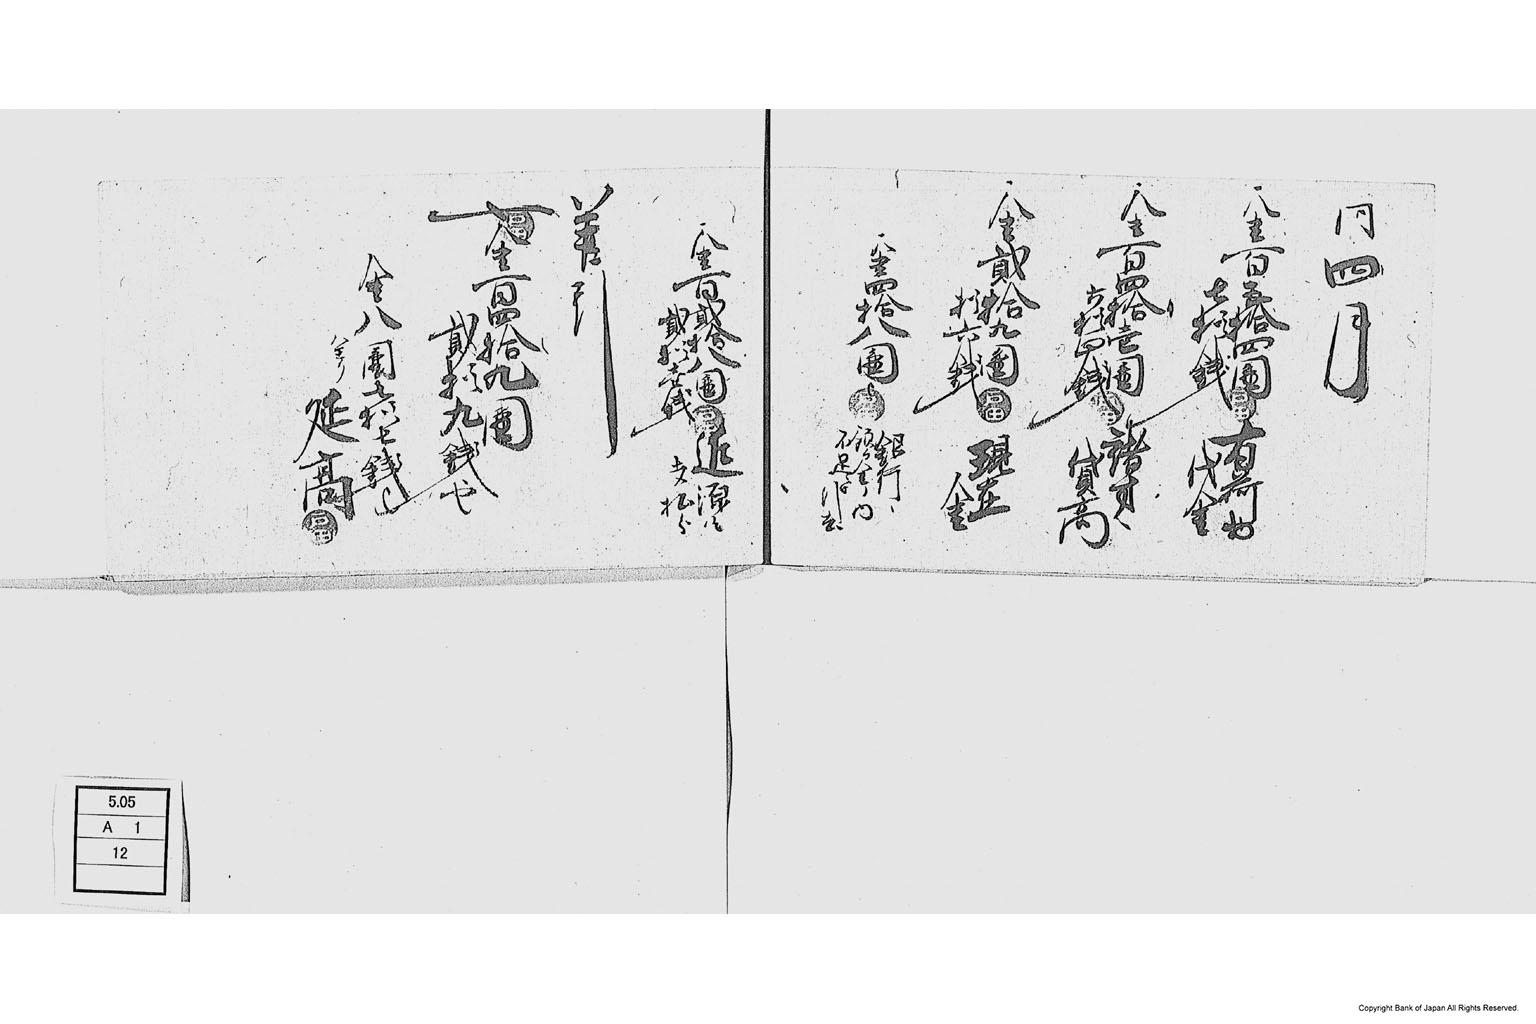 同四月
一金百五拾四圓
七拾銭
有荷物
代金
一金百四拾壱圓
六拾四銭
諸方
貸高
一金貳拾九圓
拾六銭
現在
金
一金四拾八圓
銀行
内
不足
一金百貳拾八圓
貳拾壱銭
差引
一金百四拾九圓
貳拾九銭也
金八圓七拾七銭
延高
5.05
A 1
12
Copyright Bank of Japan All Rights Reserved.